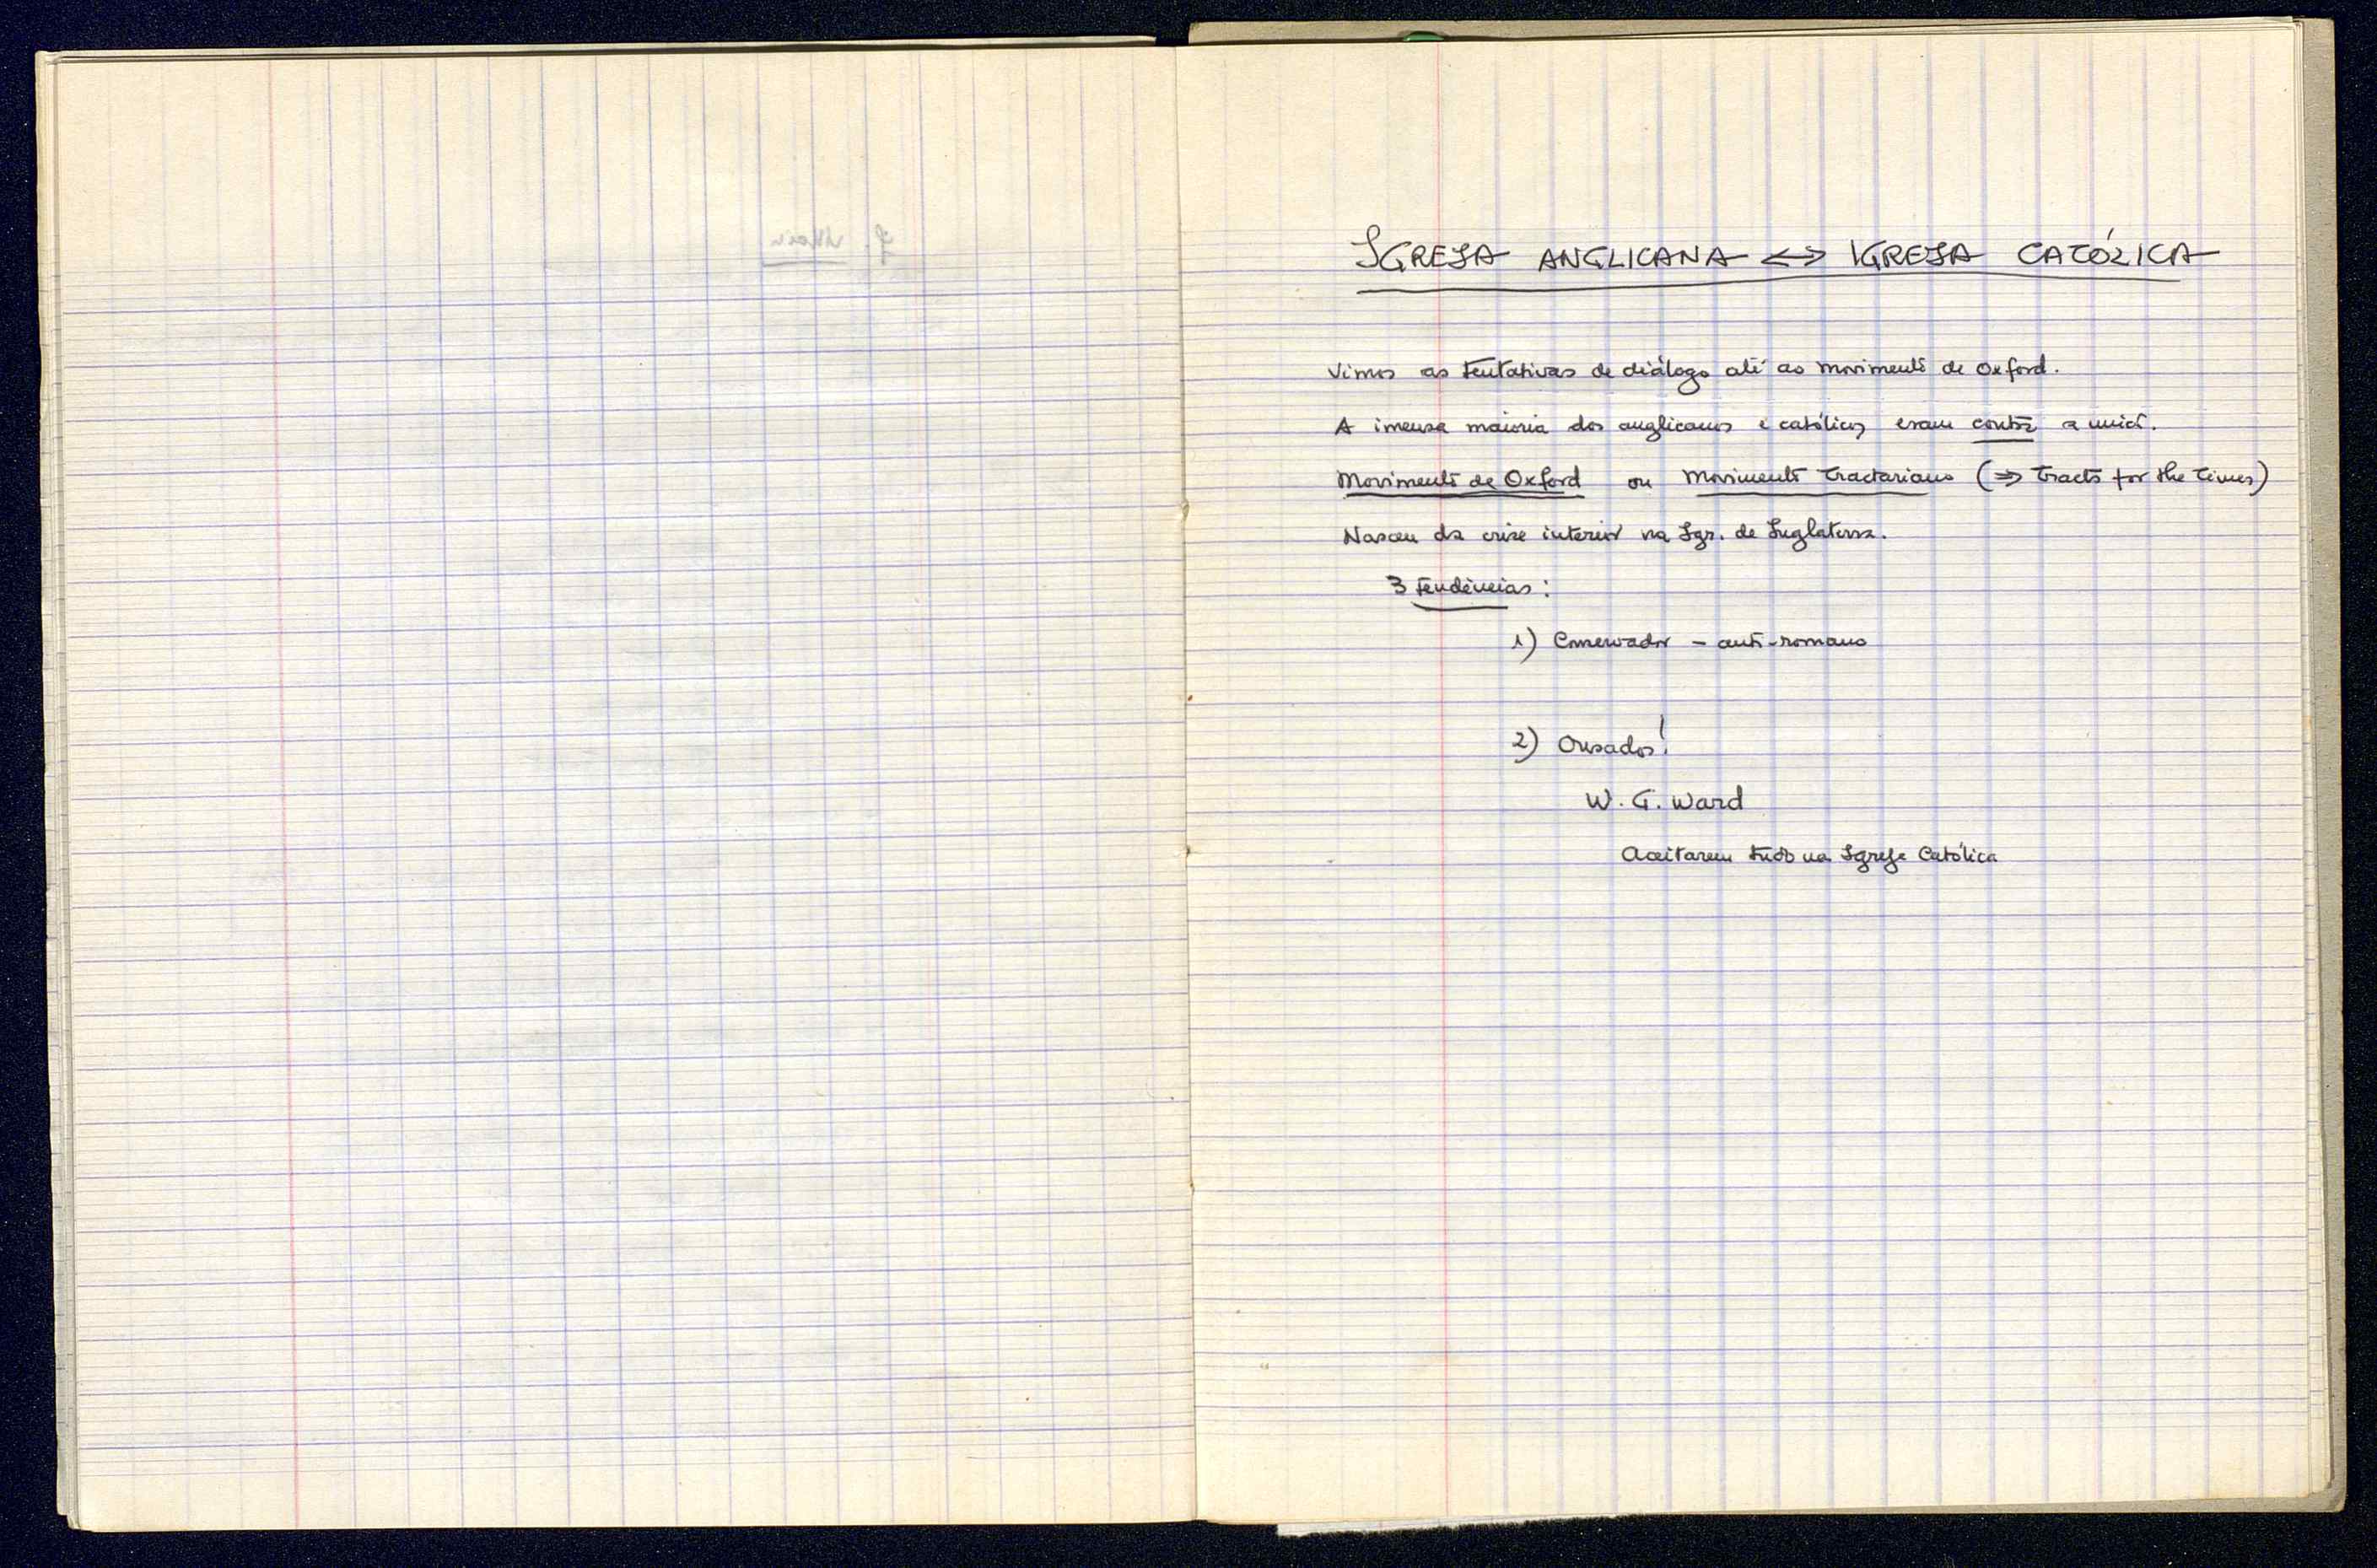 IGREJA ANGLICANA <=> IGREJA CATÓLICA
Vimos as tentativas de diálogo até ao movimento de Oxford.
A imensa maioria dos anglicanos e católicos eram contra a união.
Movimento de Oxford ou Movimento tractariano (=> tracts for the times)
Nasceu da crise interior na Igr. de Inglaterra.
3 tendências:
1) Conservador - anti-romano
2) Ousados!
W. G. Ward
Aceitarem tudo na Igreja Católica